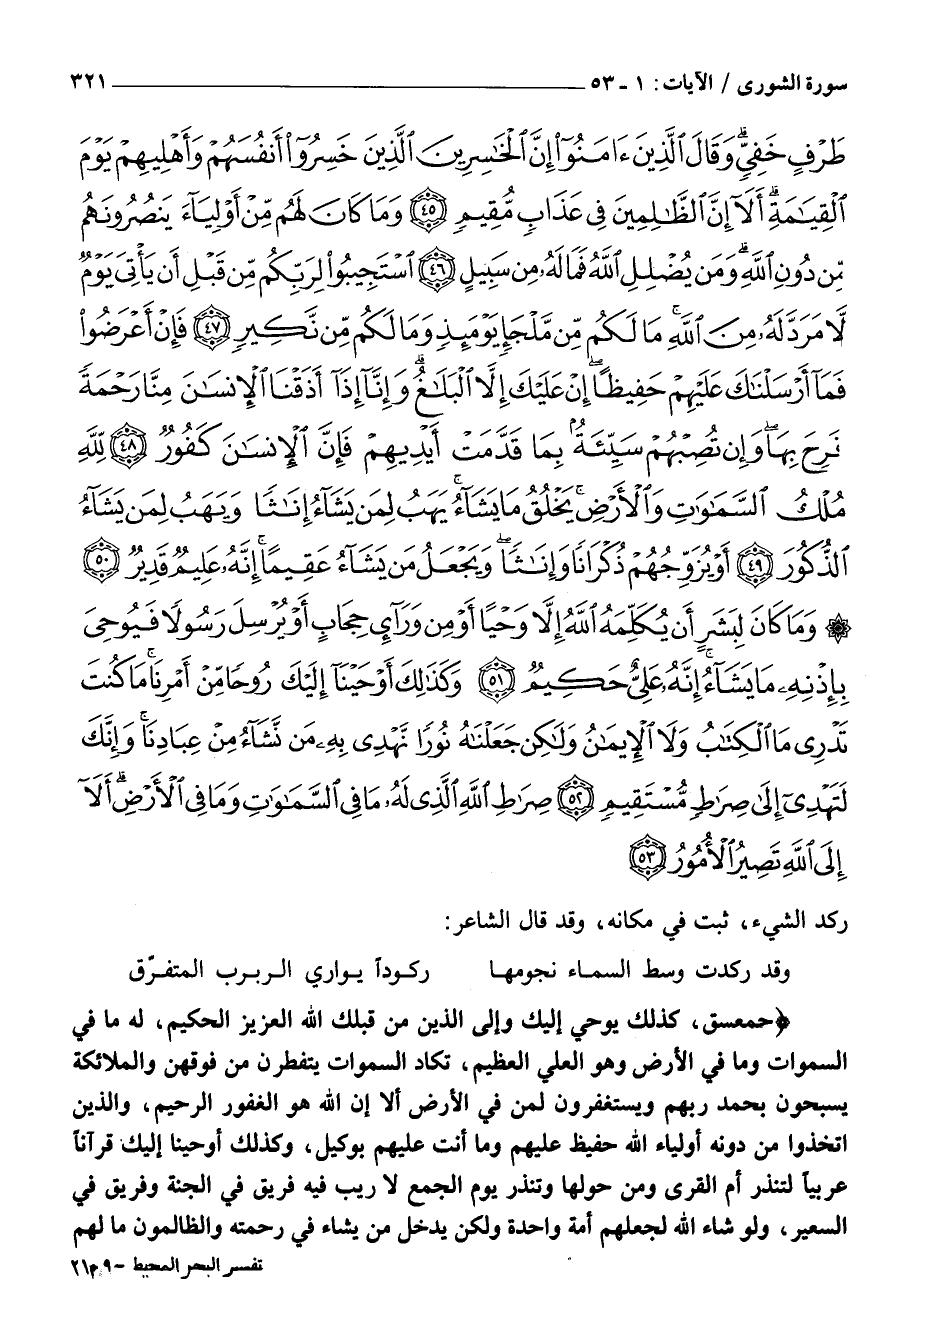 سورة الشورى / الآيات: ١ - ٥٣ ٣٢١
طَرْفٍ خَفِيٍّ ۗ وَقَالَ ٱلَّذِينَ ءَامَنُوٓا۟ إِنَّ ٱلْخَٰسِرِينَ ٱلَّذِينَ خَسِرُوٓا۟ أَنفُسَهُمْ وَأَهْلِيهِمْ يَوْمَ
ٱلْقِيَٰمَةِ ۗ أَلَآ إِنَّ ٱلظَّٰلِمِينَ فِى عَذَابٍ مُّقِيمٍ ٤٥ وَمَا كَانَ لَهُم مِّنْ أَوْلِيَآءَ يَنصُرُونَهُم
مِّن دُونِ ٱللَّهِ ۗ وَمَن يُضْلِلِ ٱللَّهُ فَمَا لَهُۥ مِن سَبِيلٍ ٤٦ ٱسْتَجِيبُوا۟ لِرَبِّكُم مِّن قَبْلِ أَن يَأْتِىَ يَوْمٌ
لَّا مَرَدَّ لَهُۥ مِنَ ٱللَّهِ ۚ مَا لَكُم مِّن مَّلْجَإٍ يَوْمَئِذٍ وَمَا لَكُم مِّن نَّكِيرٍ ٤٧ فَإِنْ أَعْرَضُوا۟
فَمَآ أَرْسَلْنَٰكَ عَلَيْهِمْ حَفِيظًا ۖ إِنْ عَلَيْكَ إِلَّا ٱلْبَلَٰغُ ۗ وَإِنَّآ إِذَآ أَذَقْنَا ٱلْإِنسَٰنَ مِنَّا رَحْمَةً
فَرِحَ بِهَا ۖ وَإِن تُصِبْهُمْ سَيِّئَةٌۢ بِمَا قَدَّمَتْ أَيْدِيهِمْ فَإِنَّ ٱلْإِنسَٰنَ كَفُورٌ ٤٨ لِّلَّهِ
مُلْكُ ٱلسَّمَٰوَٰتِ وَٱلْأَرْضِ ۚ يَخْلُقُ مَا يَشَآءُ ۚ يَهَبُ لِمَن يَشَآءُ إِنَٰثًا وَيَهَبُ لِمَن يَشَآءُ
ٱلذُّكُورَ ٤٩ أَوْ يُزَوِّجُهُمْ ذُكْرَانًا وَإِنَٰثًا ۖ وَيَجْعَلُ مَن يَشَآءُ عَقِيمًا ۚ إِنَّهُۥ عَلِيمٌ قَدِيرٌ ٥٠
۞ وَمَا كَانَ لِبَشَرٍ أَن يُكَلِّمَهُ ٱللَّهُ إِلَّا وَحْيًا أَوْ مِن وَرَآئِ حِجَابٍ أَوْ يُرْسِلَ رَسُولًا فَيُوحِىَ
بِإِذْنِهِۦ مَا يَشَآءُ ۚ إِنَّهُۥ عَلِىٌّ حَكِيمٌ ٥١ وَكَذَٰلِكَ أَوْحَيْنَآ إِلَيْكَ رُوحًا مِّنْ أَمْرِنَا ۚ مَا كُنتَ
تَدْرِى مَا ٱلْكِتَٰبُ وَلَا ٱلْإِيمَٰنُ وَلَٰكِن جَعَلْنَٰهُ نُورًا نَّهْدِى بِهِۦ مَن نَّشَآءُ مِنْ عِبَادِنَا ۚ وَإِنَّكَ
لَتَهْدِىٓ إِلَىٰ صِرَٰطٍ مُّسْتَقِيمٍ ٥٢ صِرَٰطِ ٱللَّهِ ٱلَّذِى لَهُۥ مَا فِى ٱلسَّمَٰوَٰتِ وَمَا فِى ٱلْأَرْضِ ۗ أَلَآ
إِلَى ٱللَّهِ تَصِيرُ ٱلْأُمُورُ ٥٣
ركد الشيء، ثبت في مكانه، وقد قال الشاعر:
وقد ركدت وسط السماء نجومها ركوداً يواري الربرب المتفرّق
﴿حمعسق، كذلك يوحي إليك وإلى الذين من قبلك الله العزيز الحكيم، له ما في
السموات وما في الأرض وهو العلي العظيم، تكاد السموات يتفطرن من فوقهن والملائكة
يسبحون بحمد ربهم ويستغفرون لمن في الأرض ألا إن الله هو الغفور الرحيم، والذين
اتخذوا من دونه أولياء الله حفيظ عليهم وما أنت عليهم بوكيل، وكذلك أوحينا إليك قرآناً
عربياً لتنذر أم القرى ومن حولها وتنذر يوم الجمع لا ريب فيه فريق في الجنة وفريق في
السعير، ولو شاء الله لجعلهم أمة واحدة ولكن يدخل من يشاء في رحمته والظالمون ما لهم
تفسير البحر المحيط -ج٩ م٢١